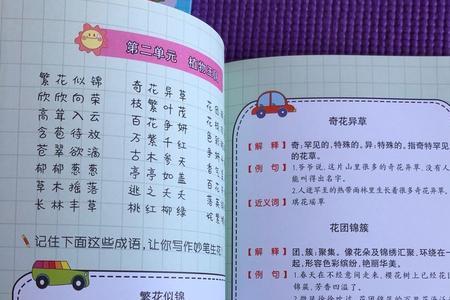 第二单元 植物王
繁花似锦 奇花异草 花团
欣欣向荣 枝繁叶茂
高耸入云 百花争妍
含苞待放 万紫千红
苍翠欲滴 古木参天
郁郁葱葱 亭亭如盖
草木摇落 之夭夭
长林丰草 桃红柳绿
记住下面这些成语,让你写作妙笔生花
繁花似锦
奇花异草
【解释】奇:罕见的,特殊的。异:特殊。指奇特罕见的
的花草。
【例句】1.爷爷说,这片山里很多的奇花异草,没有人
能叫得出名字。
2.人进罕至的热带雨林里生长着很多奇花异草。
【近义词】琪花瑶草
花团锦簇
【解释】团、簇:聚集。像花朵及锦绣汇聚,环绕在一
起,形容色彩缤纷,艳丽华美。
【例句】1.春天在不经意间走来,樱花树上已经花团
锦簇,芳香四溢了。